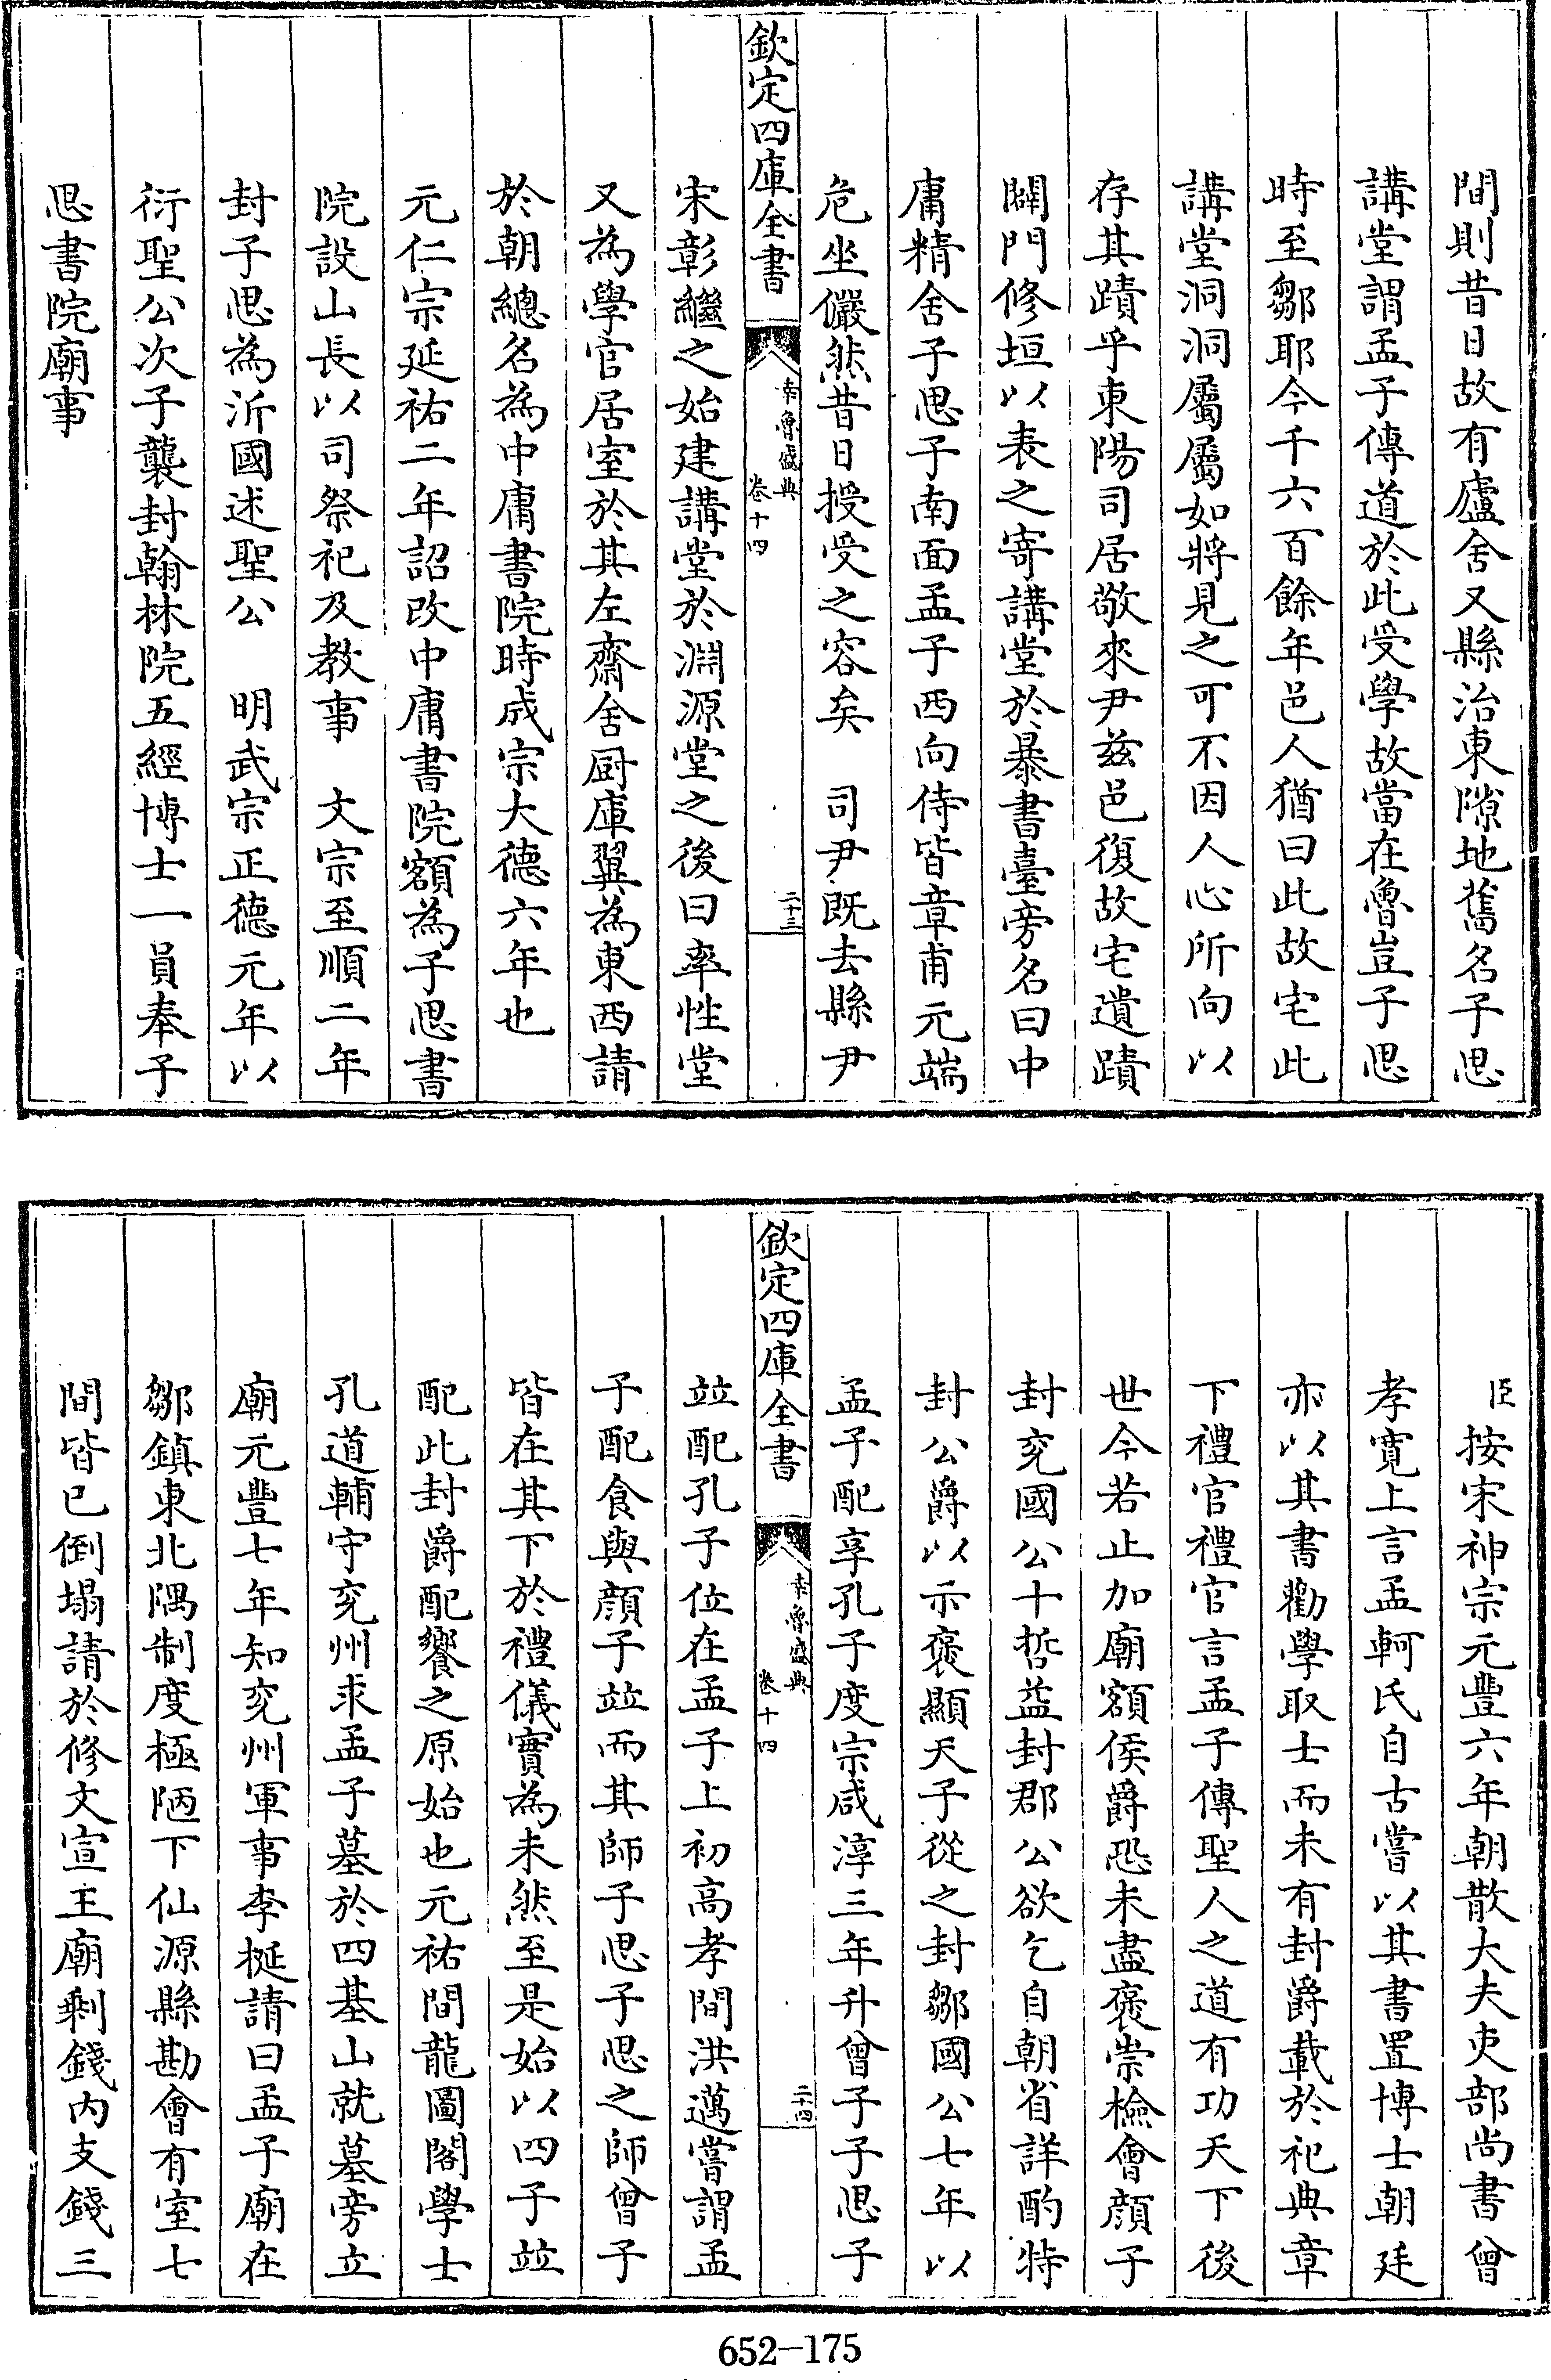 間則昔日故有廬舍又縣治東隙地舊名子思
講堂謂孟子傳道於此受學故當在魯豈子思
時至鄒耶今千六百餘年邑人猶曰此故宅此
講堂洞洞屬屬如將見之可不因人心所向以
存其蹟乎東陽司居敬來尹兹邑復故宅遺蹟
闢門修垣以表之寄講堂於暴書臺旁名曰中
庸精舍子思子南面孟子西向侍皆章甫元端
危坐儼然昔日授受之容矣　司尹既去縣尹
欽定四庫全書
幸魯盛典
卷十四
二十三
宋彰繼之始建講堂於淵源堂之後曰率性堂
又為學官居室於其左齋舍厨庫翼為東西請
於朝總名為中庸書院時成宗大德六年也
元仁宗延祐二年詔改中庸書院額為子思書
院設山長以司祭祀及教事　文宗至順二年
封子思為沂國述聖公　明武宗正德元年以
衍聖公次子襲封翰林院五經博士一員奉子
思書院廟事
臣按宋神宗元豐六年朝散大夫吏部尚書曾
孝寬上言孟軻氏自古嘗以其書置博士朝廷
亦以其書勸學取士而未有封爵載於祀典章
下禮官禮官言孟子傳聖人之道有功天下後
世今若止加廟額侯爵恐未盡褒崇檢會顔子
封兖國公十哲益封郡公欲乞自朝省詳酌特
封公爵以示褒顯天子從之封鄒國公七年以
孟子配享孔子度宗咸淳三年升曾子子思子
欽定四庫全書
幸魯盛典
卷十四
二十四
竝配孔子位在孟子上初高孝間洪邁嘗謂孟
子配食與顔子竝而其師子思子思之師曾子
皆在其下於禮儀實為未然至是始以四子竝
配此封爵配饗之原始也元祐間龍圖閣學士
孔道輔守兖州求孟子墓於四基山就墓旁立
廟元豐七年知兖州軍事李梴請曰孟子廟在
鄒鎮東北隅制度極陋下仙源縣勘會有室七
間皆已倒塌請於修文宣王廟剩錢内支錢三
652-175